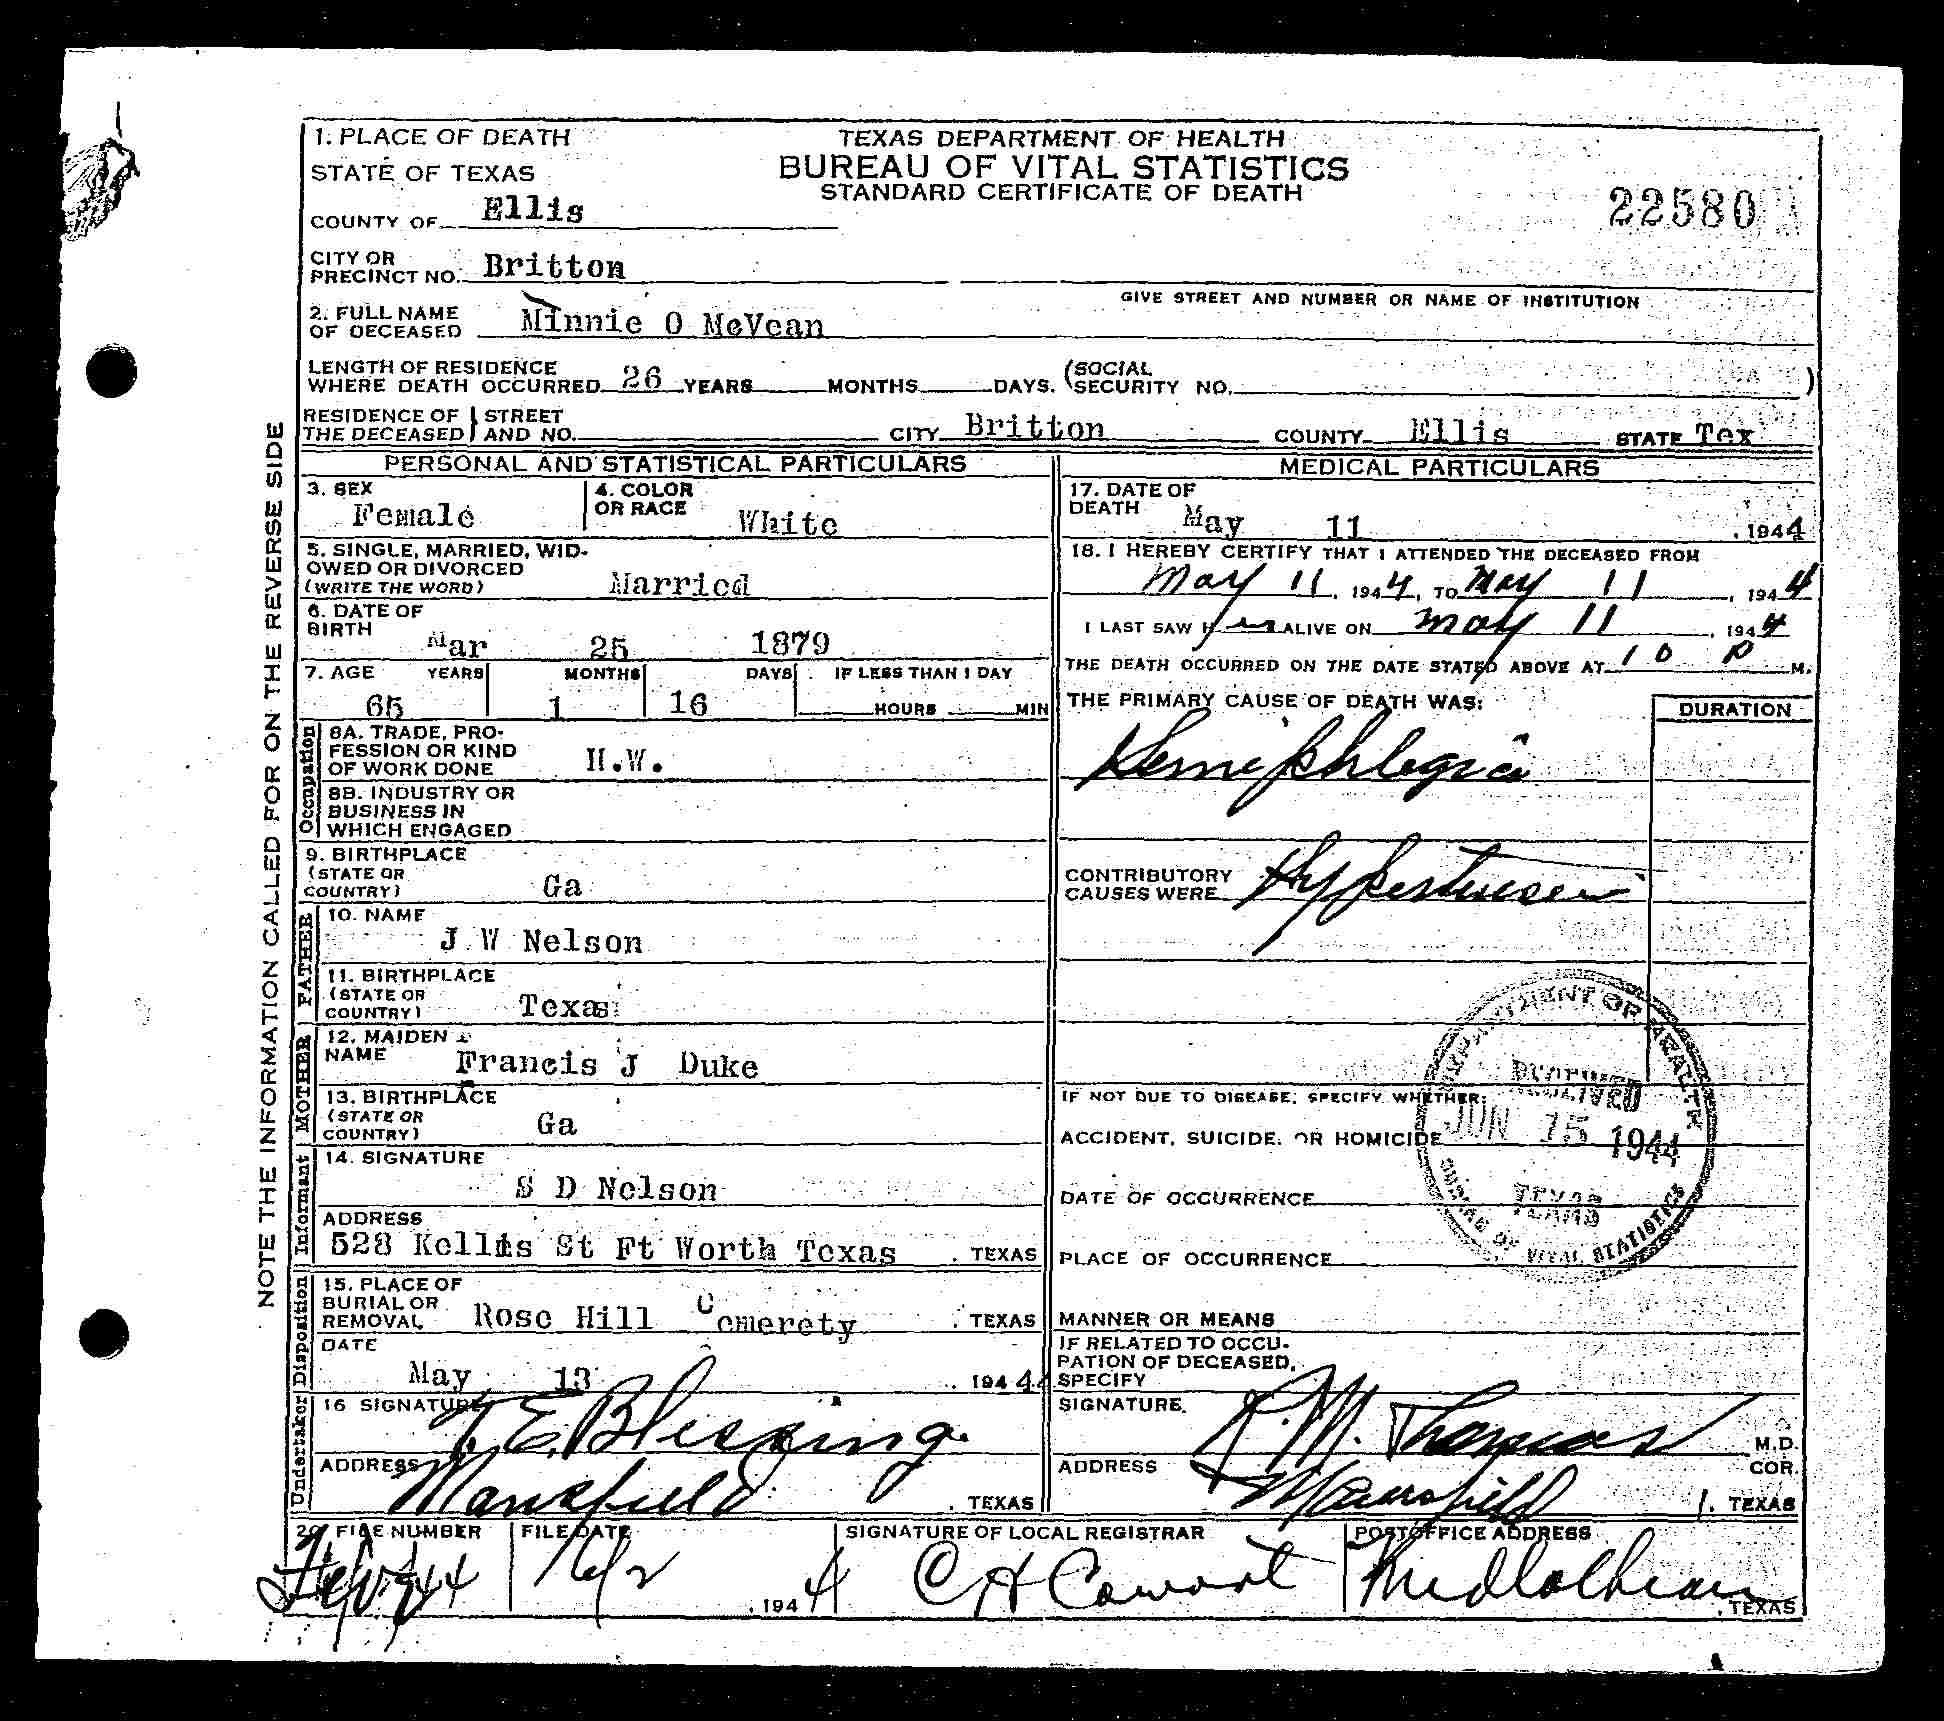 1. PLACE OF DEATH
STATE OF TEXAS
COUNTY OF Ellis
TEXAS DEPARTMENT OF HEALTH
BUREAU OF VITAL STATISTICS
STANDARD CERTIFICATE OF DEATH
22580
CITY OR
PRECINCT NO. Britton
GIVE STREET AND NUMBER OR NAME OF INSTITUTION
2. FULL NAME
OF DECEASED Minnie O McVean
LENGTH OF RESIDENCE
WHERE DEATH OCCURRED 26 YEARS MONTHS DAYS. (SOCIAL SECURITY NO. )
RESIDENCE OF THE DECEASED } STREET AND NO. CITY Britton COUNTY Ellis STATE Tex
NOTE THE INFORMATION CALLED FOR ON THE REVERSE SIDE
PERSONAL AND STATISTICAL PARTICULARS
3. SEX
Female
4. COLOR
OR RACE White
5. SINGLE, MARRIED, WID-
OWED OR DIVORCED
(WRITE THE WORD) Married
6. DATE OF
BIRTH Mar 25 1879
7. AGE YEARS MONTHS DAYS IF LESS THAN 1 DAY
65 1 16 HOURS MIN
Occupation
8A. TRADE, PRO-
FESSION OR KIND
OF WORK DONE H.W.
8B. INDUSTRY OR
BUSINESS IN
WHICH ENGAGED
9. BIRTHPLACE
(STATE OR
COUNTRY) Ga
FATHER
10. NAME
J W Nelson
11. BIRTHPLACE
(STATE OR
COUNTRY) Texas
MOTHER
12. MAIDEN
NAME Francis J Duke
13. BIRTHPLACE
(STATE OR
COUNTRY) Ga
Informant
14. SIGNATURE
S D Nelson
ADDRESS
528 Kellis St Ft Worth Texas . TEXAS
Disposition
15. PLACE OF
BURIAL OR
REMOVAL Rose Hill Cemerety . TEXAS
DATE
May 13 . 1944
Undertaker
16 SIGNATURE T. E. Blessing.
ADDRESS Mansfield . TEXAS
MEDICAL PARTICULARS
17. DATE OF
DEATH May 11 , 1944
18. I HEREBY CERTIFY THAT I ATTENDED THE DECEASED FROM
May 11, 1944, TO May 11, 1944
I LAST SAW her ALIVE ON May 11, 1944
THE DEATH OCCURRED ON THE DATE STATED ABOVE AT 10 P M.
THE PRIMARY CAUSE OF DEATH WAS:
DURATION
Hemiphlegia
CONTRIBUTORY
CAUSES WERE Hypertension
IF NOT DUE TO DISEASE, SPECIFY WHETHER:
ACCIDENT, SUICIDE, OR HOMICIDE
DATE OF OCCURRENCE
PLACE OF OCCURRENCE
DEPARTMENT OF HEALTH
RECEIVED
JUN 15 1944
TEXAS
BUREAU OF VITAL STATISTICS
MANNER OR MEANS
IF RELATED TO OCCU-
PATION OF DECEASED,
SPECIFY
SIGNATURE. R. M. Thomas M.D.
COR.
ADDRESS Mansfield . TEXAS
20. FILE NUMBER
FILE DATE
6/2 , 1944
SIGNATURE OF LOCAL REGISTRAR
C H Cowart
POSTOFFICE ADDRESS
Midlothian . TEXAS